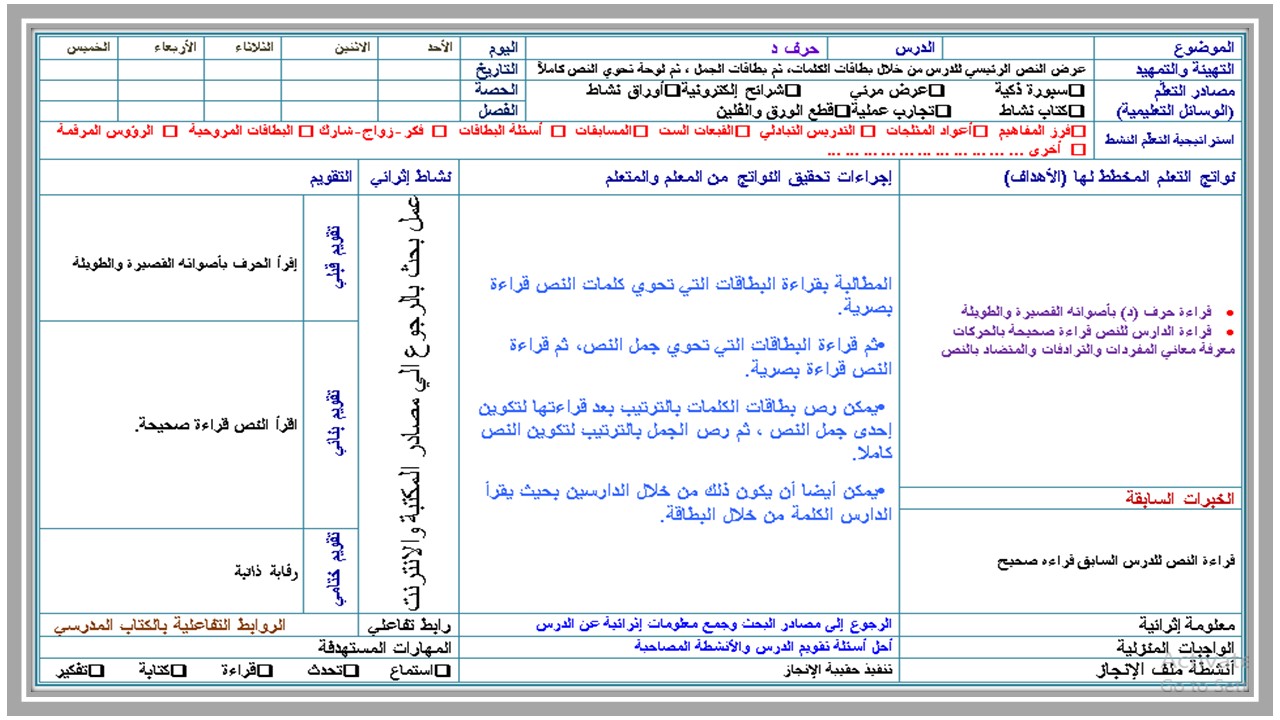 الموضوع الدرس حرف د اليوم الأحد الاثنين الثلاثاء الأربعاء الخميس
التهيئة والتمهيد عرض النص الرئيسي للدرس من خلال بطاقات الكلمات، ثم بطاقات الجمل ، ثم لوحة تحوي النص كاملاً التاريخ
مصادر التعلّم □سبورة ذكية □عرض مرئي □شرائح إلكترونية □أوراق نشاط الحصة
(الوسائل التعليمية) □كتاب نشاط □تجارب عملية □قطع الورق والفلين الفصل
استراتيجية التعلّم النشط □فرز المفاهيم □أعواد المثلجات □ التدريس التبادلي □القبعات الست □المسابقات □ أسئلة البطاقات □ فكر-زواج-شارك □ البطاقات المروحية □ الرؤوس المرقمة
□ أخرى ... ... ... ... ... ... ... ... ... ... ...
نواتج التعلم المخطط لها (الأهداف) إجراءات تحقيق النواتج من المعلم والمتعلم نشاط إثرائي التقويم
• قراءة حرف (د) بأصواته القصيرة والطويلة
• قراءة الدارس للنص قراءة صحيحة بالحركات
معرفة معاني المفردات والترادفات والمتضاد بالنص
الخبرات السابقة
قراءة النص للدرس السابق قراءه صحيح
المطالبة بقراءة البطاقات التي تحوي كلمات النص قراءة
بصرية.
•ثم قراءة البطاقات التي تحوي جمل النص، ثم قراءة
النص قراءة بصرية.
•يمكن رص بطاقات الكلمات بالترتيب بعد قراءتها لتكوين
إحدى جمل النص ، ثم رص الجمل بالترتيب لتكوين النص
كاملا.
•يمكن أيضا أن يكون ذلك من خلال الدارسين بحيث يقرأ
الدارس الكلمة من خلال البطاقة.
عمل بحث بالرجوع الي مصادر المكتبة والانترنت
تقويم قبلي إقرأ الحرف بأصواته القصيرة والطويلة
تقويم بنائي اقرأ النص قراءة صحيحة.
تقويم ختامي رقابة ذاتية
معلومة إثرائية الرجوع إلى مصادر البحث وجمع معلومات إثرائية عن الدرس رابط تفاعلي الروابط التفاعلية بالكتاب المدرسي
الواجبات المنزلية أحل أسئلة تقويم الدرس والأنشطة المصاحبة المهارات المستهدفة
أنشطة ملف الإنجاز تنفيذ حقيبة الإنجاز □استماع □تحدث □قراءة □كتابة □تفكير